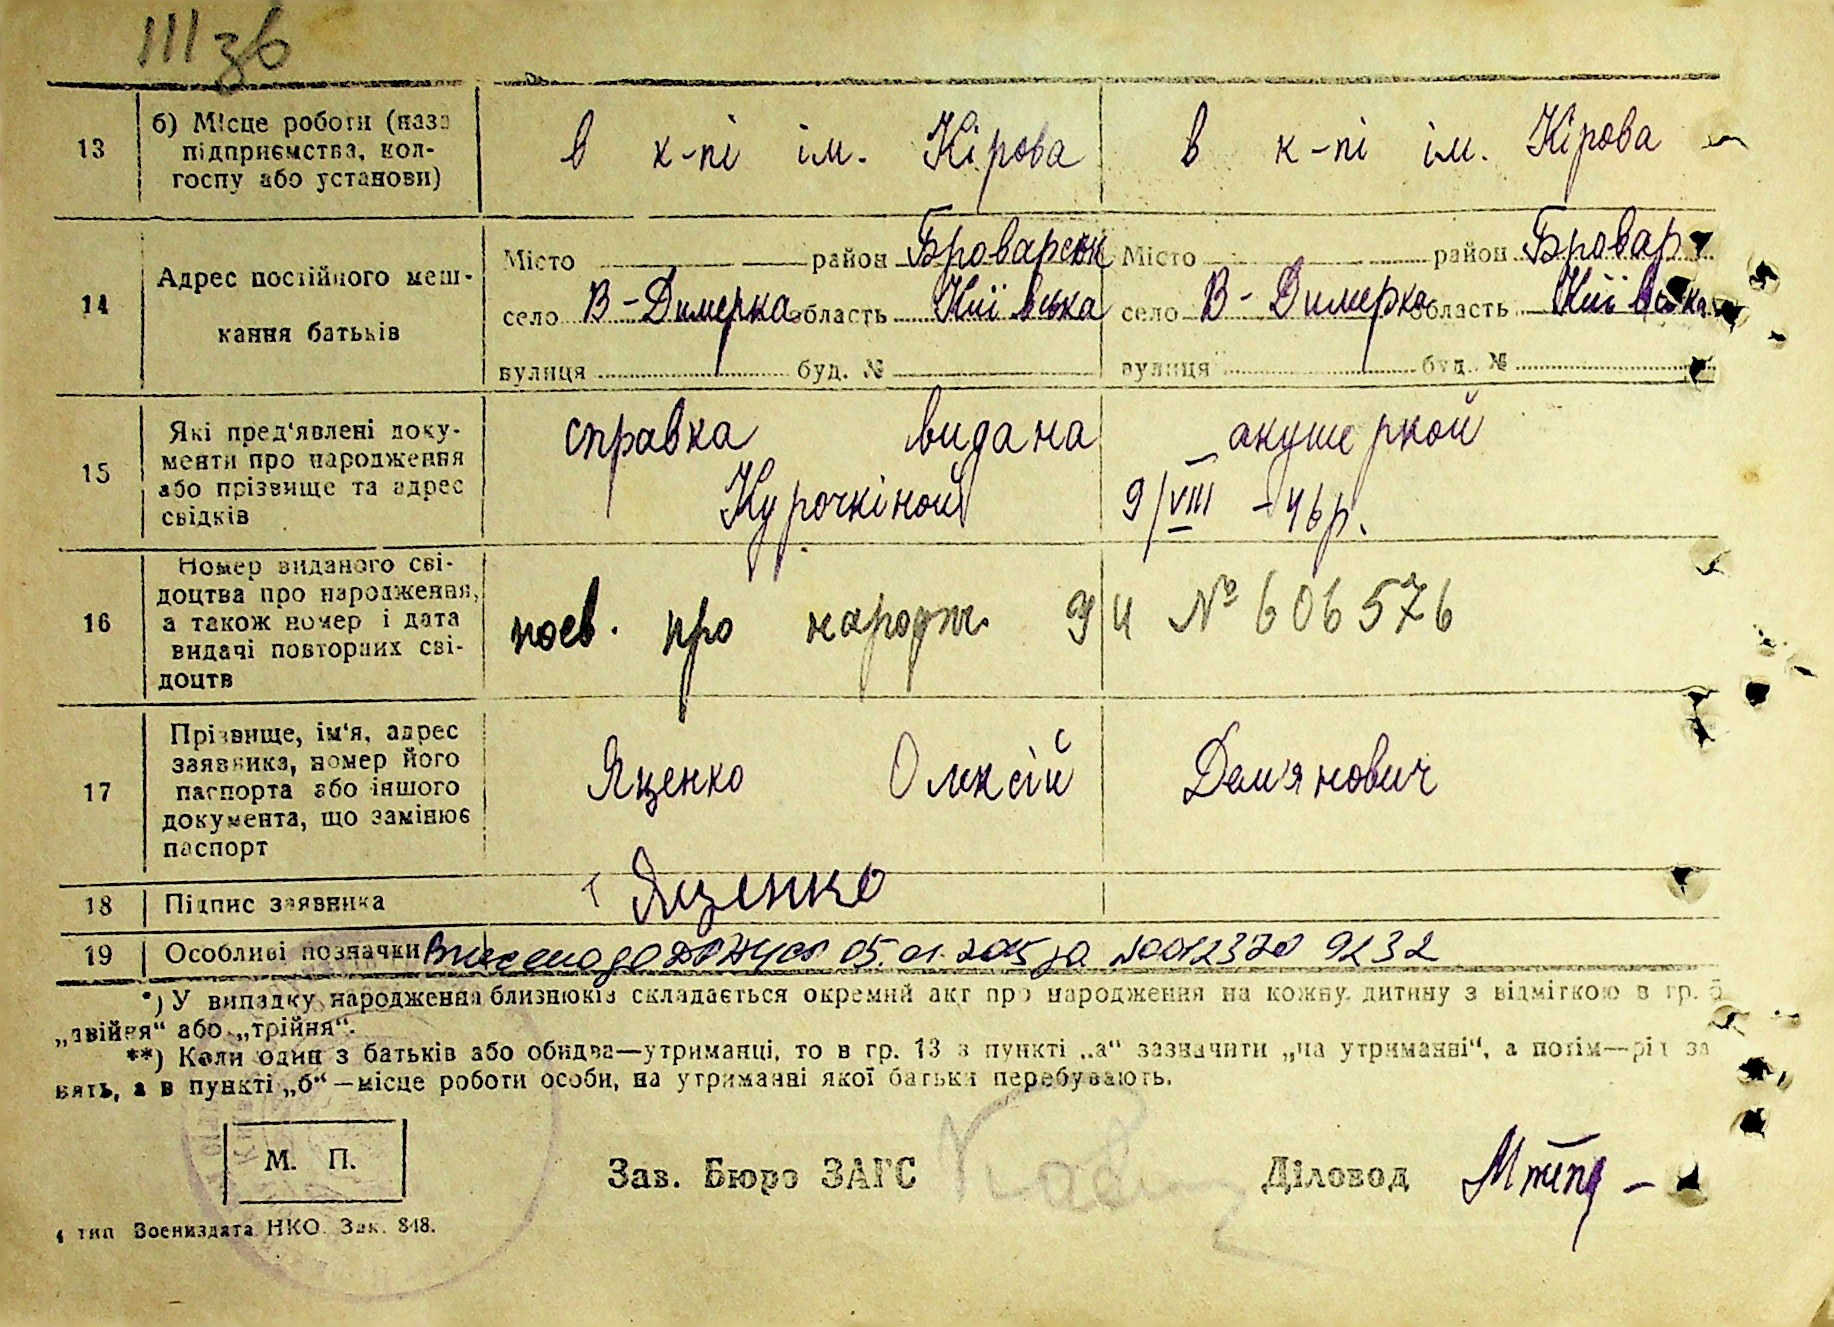 III зв
13 б) Місце роботи (назв підприємства, кол- в к-пі ім. Кірова в к-пі ім. Кірова
госпу або установи)
14 Адрес постійного меш- Місто район Броварськ Місто район Бровар
кання батьків село В-Димерка область Київська село В-Димерка область Київська
вулиця буд. № вулиця буд. №
15 Які пред'явлені доку- справка видана акушеркой
менти про народження
або прізвище та адрес Курочкіной 9/VIII -46р.
свідків
16 Номер виданого сві-
доцтва про народження,
а також номер і дата посв. про народж. № 606576
видачі повторних сві-
доцтв
17 Прізвище, ім'я, адрес
заявника, номер його Яценко Олексій Дем'янович
паспорта або іншого
документа, що замінює
паспорт
18 Підпис заявника Яценко
19 Особливі позначки Внесено до ДРАЦС 05.01.2015 за №0012370 9232
*) У випадку народження близнюків складається окремий акт про народження на кожну дитину з відміткою в гр. 5
„двійня“ або „трійня“.
**) Коли один з батьків або обидва—утриманці, то в гр. 13 в пункті „а“ зазначити „на утриманні“, а потім—рід за
нять, а в пункті „б“—місце роботи особи, на утриманні якої батьки перебувають.
М. П. Зав. Бюро ЗАГС Діловод
4 тип Воениздата НКО. Зак. 848.